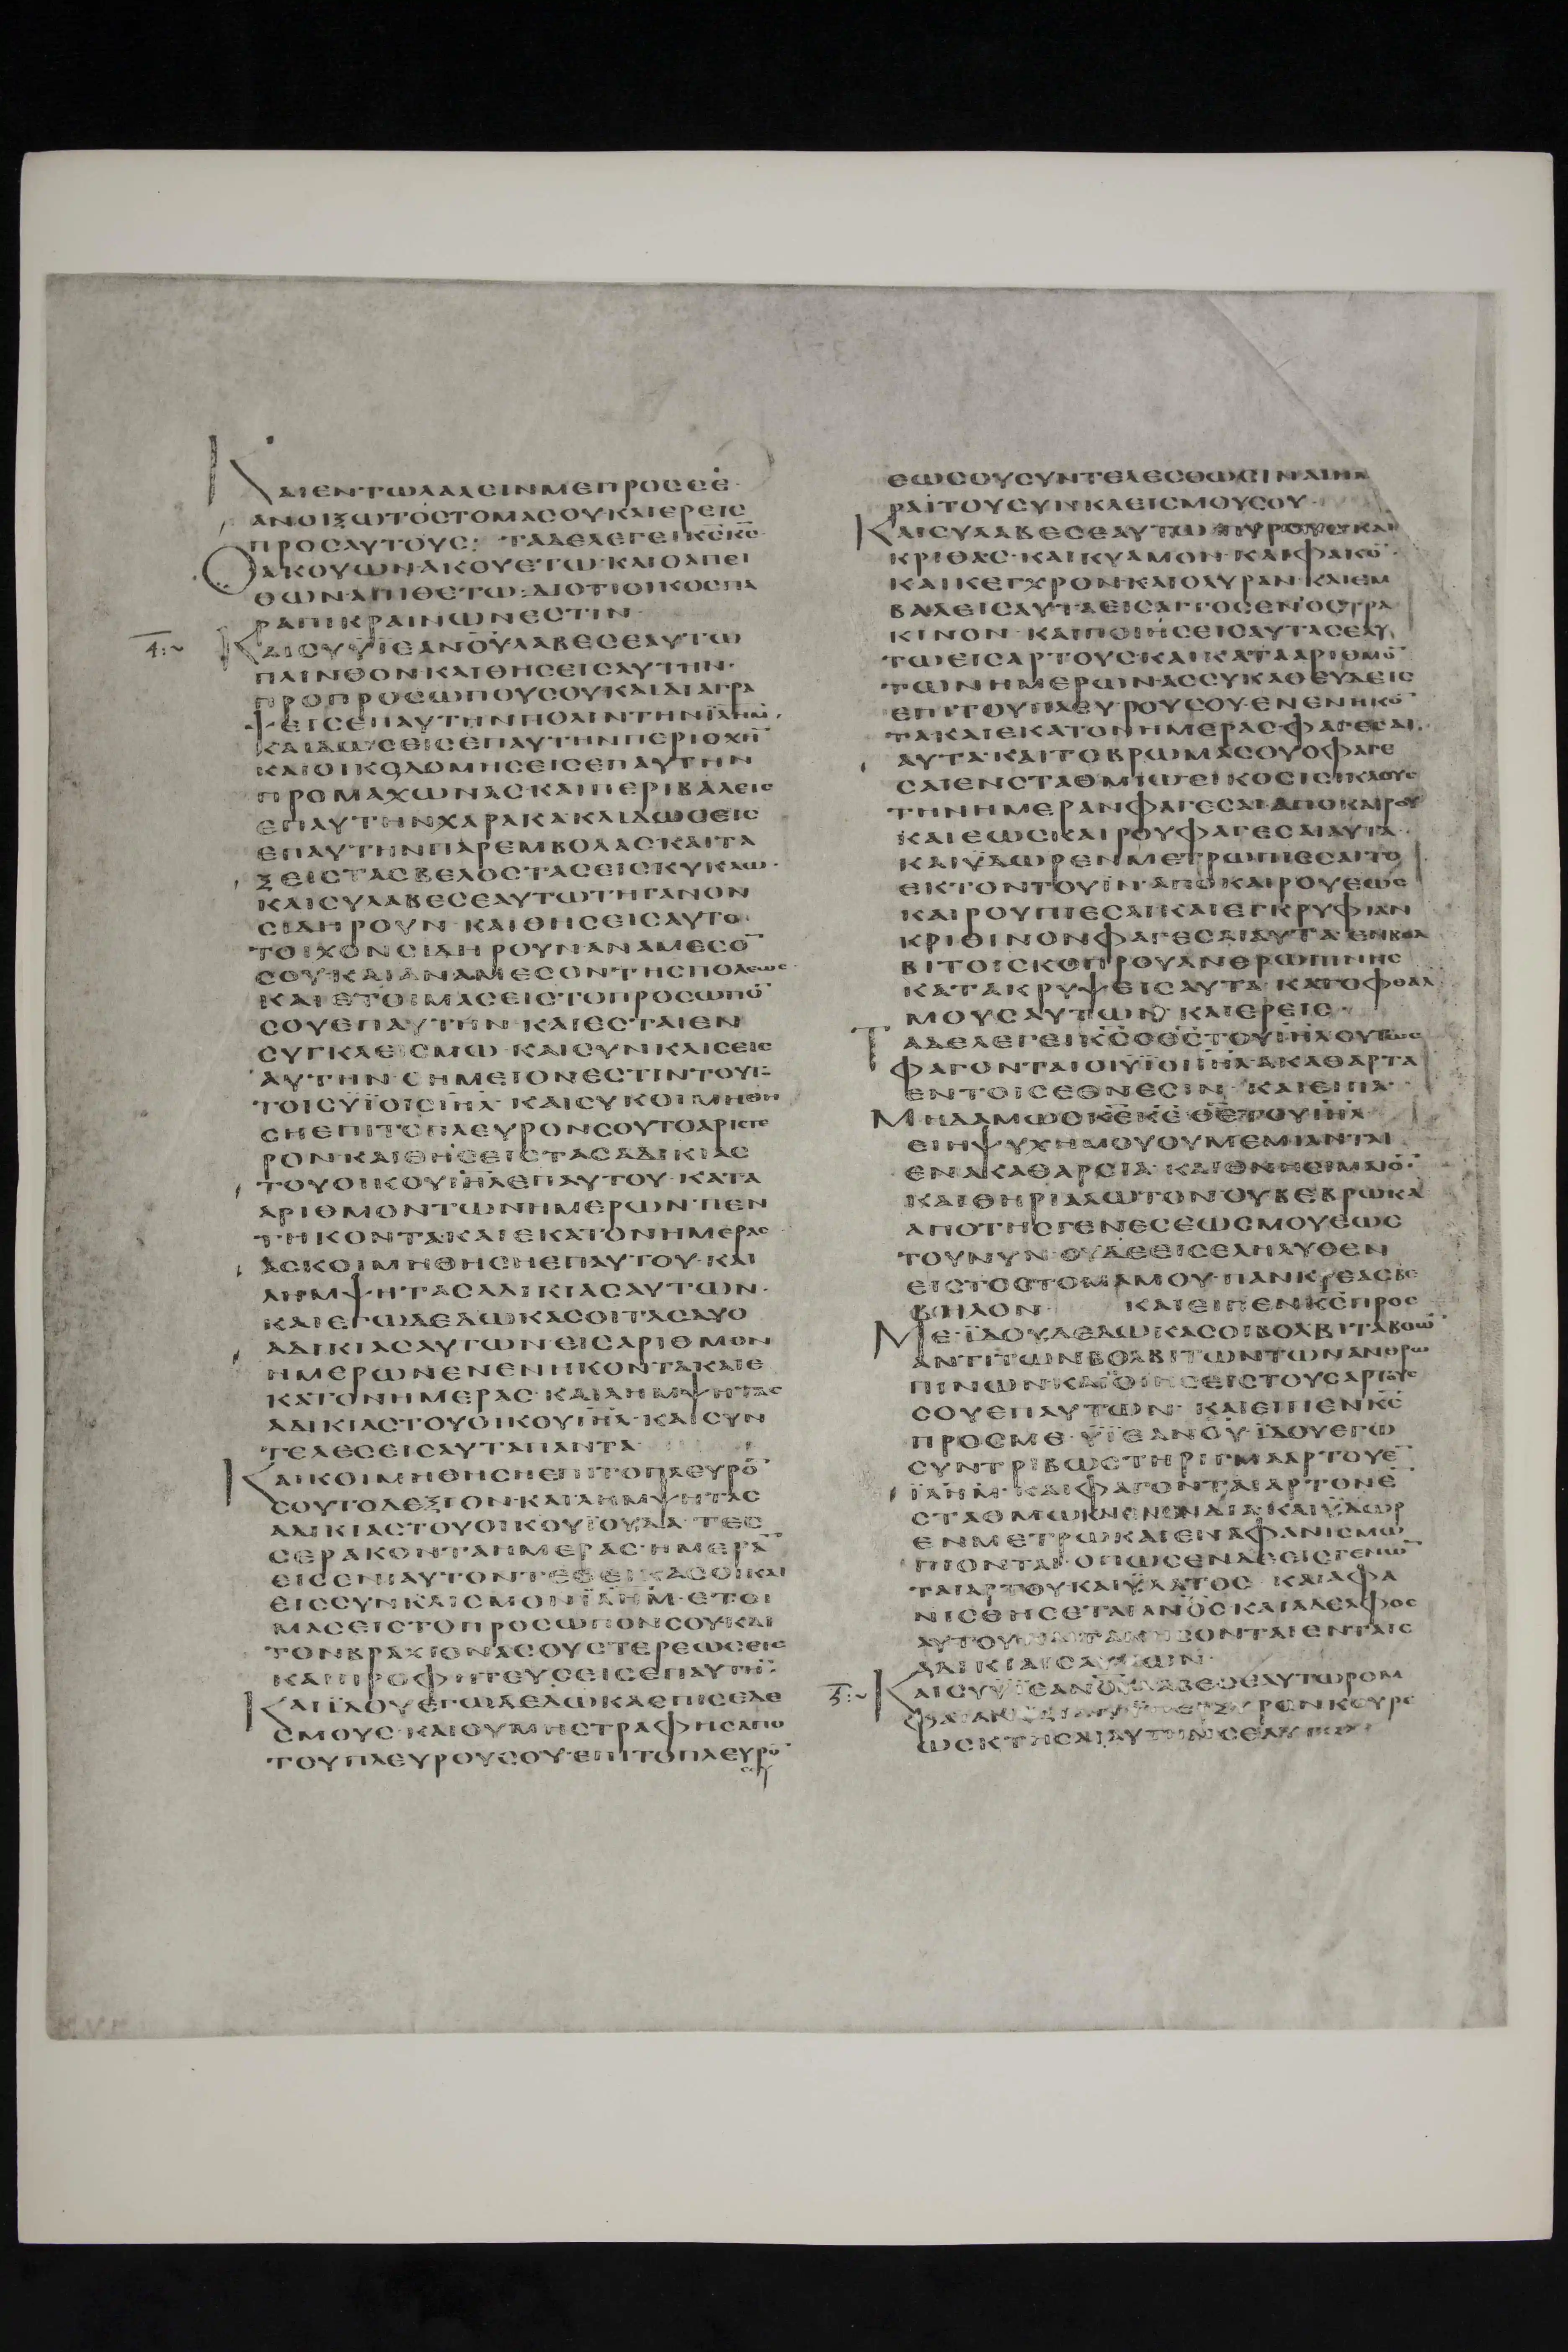 ΚΑΙΕΝΤΩΛΑΛΕΙΝΜΕΠΡΟΣΣΕ·
ΑΝΟΙΞΩΤΟΣΤΟΜΑΣΟΥΚΑΙΕΡΕΙΣ
ΠΡΟΣΑΥΤΟΥΣ: ΤΑΔΕΛΕΓΕΙΚΣΚΣ
ΟΑΚΟΥΩΝΑΚΟΥΕΤΩ·ΚΑΙΟΑΠΕΙ
ΘΩΝ·ΑΠΙΘΕΤΩ:ΔΙΟΤΙΟΙΚΟΣΠΑ
ΡΑΠΙΚΡΑΙΝΩΝΕΣΤΙΝ·
4:~ ΚΑΙΣΥΫΙΕΑΝΟΥΛΑΒΕΣΕΑΥΤΩ
ΠΛΙΝΘΟΝΚΑΙΘΗΣΕΙΣΑΥΤΗΝ·
ΠΡΟΠΡΟΣΩΠΟΥΣΟΥΚΑΙΔΙΑΓΡΑ
ΨΕΙΣΕΠΑΥΤΗΝΠΟΛΙΝΤΗΝΪΛΗΜ·
ΚΑΙΔΩΣΕΙΣΕΠΑΥΤΗΝΠΕΡΙΟΧΗ̄
ΚΑΙΟΙΚΟΔΟΜΗΣΕΙΣΕΠΑΥΤΗΝ
ΠΡΟΜΑΧΩΝΑΣΚΑΙΠΕΡΙΒΑΛΕΙΣ
ΕΠΑΥΤΗΝΧΑΡΑΚΑΚΑΙΔΩΣΕΙΣ
ΕΠΑΥΤΗΝΠΑΡΕΜΒΟΛΑΣΚΑΙΤΑ
ΞΕΙΣΤΑΣΒΕΛΟΣΤΑΣΕΙΣΚΥΚΛΩ·
ΚΑΙΣΥΛΑΒΕΣΕΑΥΤΩΤΗΓΑΝΟΝ
ΣΙΔΗΡΟΥΝ·ΚΑΙΘΗΣΕΙΣΑΥΤΟ·
ΤΟΙΧΟΝΣΙΔΗΡΟΥΝΑΝΑΜΕΣΟ̄
ΣΟΥΚΑΙΑΝΑΜΕΣΟΝΤΗΣΠΟΛΕΩΣ·
ΚΑΙΕΤΟΙΜΑΣΕΙΣΤΟΠΡΟΣΩΠΟ̄
ΣΟΥΕΠΑΥΤΗΝ·ΚΑΙΕΣΤΑΙΕΝ
ΣΥΓΚΛΕΙΣΜΩ·ΚΑΙΣΥΝΚΛΙΣΕΙΣ
ΑΥΤΗΝ·ΣΗΜΕΙΟΝΕΣΤΙΝΤΟΥΤΟ
ΤΟΙΣΥΪΟΙΣΙΗΛ·ΚΑΙΣΥΚΟΙΜΗΘΗ
ΣΗΕΠΙΤΟΠΛΕΥΡΟΝΣΟΥΤΟΑΡΙΣΤΕ
ΡΟΝ·ΚΑΙΘΗΣΕΙΣΤΑΣΑΔΙΚΙΑΣ
ΤΟΥΟΙΚΟΥΙΗΛΕΠΑΥΤΟΥ·ΚΑΤΑ
ΑΡΙΘΜΟΝΤΩΝΗΜΕΡΩΝ·ΠΕΝ
ΤΗΚΟΝΤΑΚΑΙΕΚΑΤΟΝΗΜΕΡΑΣ
ΑΣΚΟΙΜΗΘΗΣΗΕΠΑΥΤΟΥ·ΚΑΙ
ΛΗΜΨΗΤΑΣΑΔΙΚΙΑΣΑΥΤΩΝ·
ΚΑΙΕΓΩΔΕΔΩΚΑΣΟΙΤΑΣΔΥΟ
ΑΔΙΚΙΑΣΑΥΤΩΝΕΙΣΑΡΙΘΜΟΝ
ΗΜΕΡΩΝΕΝΕΝΗΚΟΝΤΑΚΑΙΕ
ΚΑΤΟΝΗΜΕΡΑΣ·ΚΑΙΛΗΜΨΗΤΑΣ
ΑΔΙΚΙΑΣΤΟΥΟΙΚΟΥΙΗΛ·ΚΑΙΣΥΝ
ΤΕΛΕΣΕΙΣΑΥΤΑΠΑΝΤΑ
ΚΑΙΚΟΙΜΗΘΗΣΗΕΠΙΤΟΠΛΕΥΡΟ̄
ΣΟΥΤΟΔΕΞΙΟΝ·ΚΑΙΛΗΜΨΗΤΑΣ
ΑΔΙΚΙΑΣΤΟΥΟΙΚΟΥΪΟΥΔΑ·ΤΕΣ
ΣΕΡΑΚΟΝΤΑΗΜΕΡΑΣ·ΗΜΕΡᾹ
ΕΙΣΕΝΙΑΥΤΟΝΤΕΘΕΙΚΑΣΟΙΚΑΙ
ΕΙΣΣΥΝΚΛΙΣΜΟΝΪΛΗΜ·ΕΤΟΙ
ΜΑΣΕΙΣΤΟΠΡΟΣΩΠΟΝΣΟΥΚΑΙ
ΤΟΝΒΡΑΧΙΟΝΑΣΟΥΣΤΕΡΕΩΣΕΙΣ
ΚΑΙΠΡΟΦΗΤΕΥΣΕΙΣΕΠΑΥΤΗ̄·
ΚΑΙΪΔΟΥΕΓΩΔΕΔΩΚΑΕΠΙΣΕΔΕ
ΣΜΟΥΣ·ΚΑΙΟΥΜΗΣΤΡΑΦΗΣΑΠΟ
ΤΟΥΠΛΕΥΡΟΥΣΟΥΕΠΙΤΟΠΛΕΥΡΟ̄
ΣΟΥ
ΕΩΣΟΥΣΥΝΤΕΛΕΣΘΩΣΙΝΑΙΗΜ
ΡΑΙΤΟΥΣΥΝΚΛΕΙΣΜΟΥΣΟΥ·
ΚΑΙΣΥΛΑΒΕΣΕΑΥΤΩΠΥΡΟΥΣΚΑΙ
ΚΡΙΘΑΣ·ΚΑΙΚΥΑΜΟΝ·ΚΑΙΦΑΚΟ̄·
ΚΑΙΚΕΓΧΡΟΝ·ΚΑΙΟΛΥΡΑΝ·ΚΑΙΕΜ
ΒΑΛΕΙΣΑΥΤΑΕΙΣΑΓΓΟΣΕΝΟΣΤΡΑ
ΚΙΝΟΝ·ΚΑΙΠΟΙΗΣΕΙΣΑΥΤΑΣΕΑΥ
ΤΩΕΙΣΑΡΤΟΥΣ·ΚΑΙΚΑΤΑΑΡΙΘΜΟ̄
ΤΩΝΗΜΕΡΩΝΑΣΣΥΚΑΘΕΥΔΕΙΣ
ΕΠΙΤΟΥΠΛΕΥΡΟΥΣΟΥ·ΕΝΕΝΗΚΟ̄
ΤΑΚΑΙΕΚΑΤΟΝΗΜΕΡΑΣΦΑΓΕΣΑΙ·
ΑΥΤΑ·ΚΑΙΤΟΒΡΩΜΑΣΟΥΟΦΑΓΕ
ΣΑΙΕΝΣΤΑΘΜΙΩΕΙΚΟΣΙΣΙΚΛΟΥΣ
ΤΗΝΗΜΕΡΑΝΦΑΓΕΣΑΙΑΠΟΚΑΙΡΟΥ
ΚΑΙΕΩΣΚΑΙΡΟΥΦΑΓΕΣΑΙΑΥΤΑ·
ΚΑΙΫΔΩΡΕΝΜΕΤΡΩΠΙΕΣΑΙΤΟ
ΕΚΤΟΝΤΟΥΙΝ·ΑΠΟΚΑΙΡΟΥΕΩΣ
ΚΑΙΡΟΥΠΙΕΣΑΙ·ΚΑΙΕΓΚΡΥΦΙΑΝ
ΚΡΙΘΙΝΟΝΦΑΓΕΣΑΙΑΥΤΑ·ΕΝΒΟΛ
ΒΙΤΟΙΣΚΟΠΡΟΥΑΝΘΡΩΠΙΝΗΣ
ΚΑΤΑΚΡΥΨΕΙΣΑΥΤΑ·ΚΑΤΟΦΘΑΛ
ΜΟΥΣΑΥΤΩΝ·ΚΑΙΕΡΕΙΣ·
ΤΑΔΕΛΕΓΕΙΚΣΟΘΣΤΟΥΙΗΛΟΥΤΩΣ
ΦΑΓΟΝΤΑΙΟΙΥΪΟΙΙΗΛ·ΑΚΑΘΑΡΤΑ
ΕΝΤΟΙΣΕΘΝΕΣΙΝ·ΚΑΙΕΙΠΑ·
ΜΗΔΑΜΩΣΚΕΚΕΘΕΤΟΥΙΗΛ·
ΕΙΗΨΥΧΗΜΟΥΟΥΜΕΜΙΑΝΤΑΙ
ΕΝΑΚΑΘΑΡΣΙΑ·ΚΑΙΘΝΗΣΙΜΑΙΟ̄·
ΚΑΙΘΗΡΙΑΛΩΤΟΝΟΥΒΕΒΡΩΚΑ
ΑΠΟΤΗΣΓΕΝΕΣΕΩΣΜΟΥΕΩΣ
ΤΟΥΝΥΝ·ΟΥΔΕΕΙΣΕΛΗΛΥΘΕΝ
ΕΙΣΤΟΣΤΟΜΑΜΟΥ·ΠΑΝΚΡΕΑΣΒΕ
ΒΗΛΟΝ· ΚΑΙΕΙΠΕΝΚΣΠΡΟΣ
ΜΕ·ΪΔΟΥΔΕΔΩΚΑΣΟΙΒΟΛΒΙΤΑΒΟΩ̄
ΑΝΤΙΤΩΝΒΟΛΒΙΤΩΝΤΩΝΑΝΘΡΩ
ΠΙΝΩΝ·ΚΑΙΠΟΙΗΣΕΙΣΤΟΥΣΑΡΤΟΥΣ
ΣΟΥΕΠΑΥΤΩΝ·ΚΑΙΕΙΠΕΝΚΣ
ΠΡΟΣΜΕ·ΥΪΕΑΝΟΥ·ΪΔΟΥΕΓΩ
ΣΥΝΤΡΙΒΩΣΤΗΡΙΓΜΑΑΡΤΟΥΕ̄
ΪΛΗΜ·ΚΑΙΦΑΓΟΝΤΑΙΑΡΤΟΝΕ̄
ΣΤΑΘΜΩΚΑΙΕΝΕΝΔΙΑ·ΚΑΙΫΔΩΡ
ΕΝΜΕΤΡΩΚΑΙΕΝΑΦΑΝΙΣΜΩ
ΠΙΟΝΤΑΙ·ΟΠΩΣΕΝΔΕΕΙΣΓΕΝΩ̄
ΤΑΙΑΡΤΟΥΚΑΙΫΔΑΤΟΣ·ΚΑΙΑΦΑ
ΝΙΣΘΗΣΕΤΑΙΑΝΟΣΚΑΙΑΔΕΛΦΟΣ
ΑΥΤΟΥΚΑΙΤΑΚΗΣΟΝΤΑΙΕΝΤΑΙΣ
ΑΔΙΚΙΑΙΣΑΥΤΩΝ·
5:~ ΚΑΙΣΥΫΙΕΑΝΟΥΛΑΒΕΣΕΑΥΤΩΡΟΜ
ΦΑΙΑΝΟΞΕΙΑΝΥΠΕΡΞΥΡΟΝΚΟΥΡΕ
ΩΣΚΤΗΣΑΙΑΥΤΗΝΣΕΑΥΤΩ